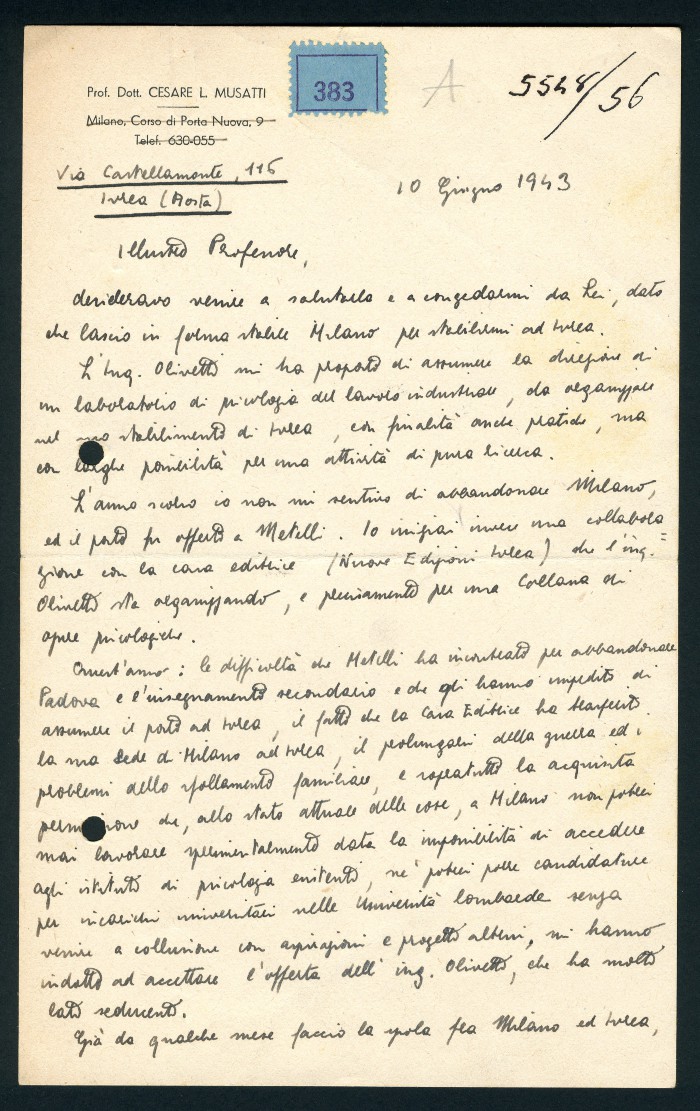 383
A
5548/56
Prof. Dott. CESARE L. MUSATTI
Milano, Corso di Porta Nuova, 9
Telef. 630-055
Via Castellamonte, 116
Ivrea (Aosta)
10 Giugno 1943
Illustre Professore,
desideravo venire a salutarla e a congedarmi da Lei, dato
che lascio in forma stabile Milano per stabilirmi ad Ivrea.
L'Ing. Olivetti mi ha proposto di assumere la direzione di
un laboratorio di psicologia del lavoro industriale, da organizzare
nel suo stabilimento di Ivrea, con finalità anche pratiche, ma
con larghe possibilità per una attività di pura ricerca.
L'anno scorso io non mi sentivo di abbandonare Milano,
ed il posto fu offerto a Metelli. Io iniziai invece una collabora=
zione con la casa editrice (Nuove Edizioni Ivrea) che l'ing.
Olivetti sta organizzando, e precisamente per una Collana di
opere psicologiche.
Quest'anno: le difficoltà che Metelli ha incontrato per abbandonare
Padova e l'insegnamento secondario e che gli hanno impedito di
assumere il posto ad Ivrea, il fatto che la Casa Editrice ha trasferito
la sua Sede di Milano ad Ivrea, il prolungarsi della guerra ed i
problemi dello sfollamento familiare, e sopratutto la acquisita
persuasione che, allo stato attuale delle cose, a Milano non potrei
mai lavorare sperimentalmente data la impossibilità di accedere
agli istituti di psicologia esistenti, nè potrei porre candidature
per incarichi universitari nelle Università lombarde senza
venire a collisione con aspirazioni e progetti altrui, mi hanno
indotto ad accettare l'offerta dell'ing. Olivetti, che ha molti
lati seducenti.
Già da qualche mese faccio la spola fra Milano ed Ivrea,